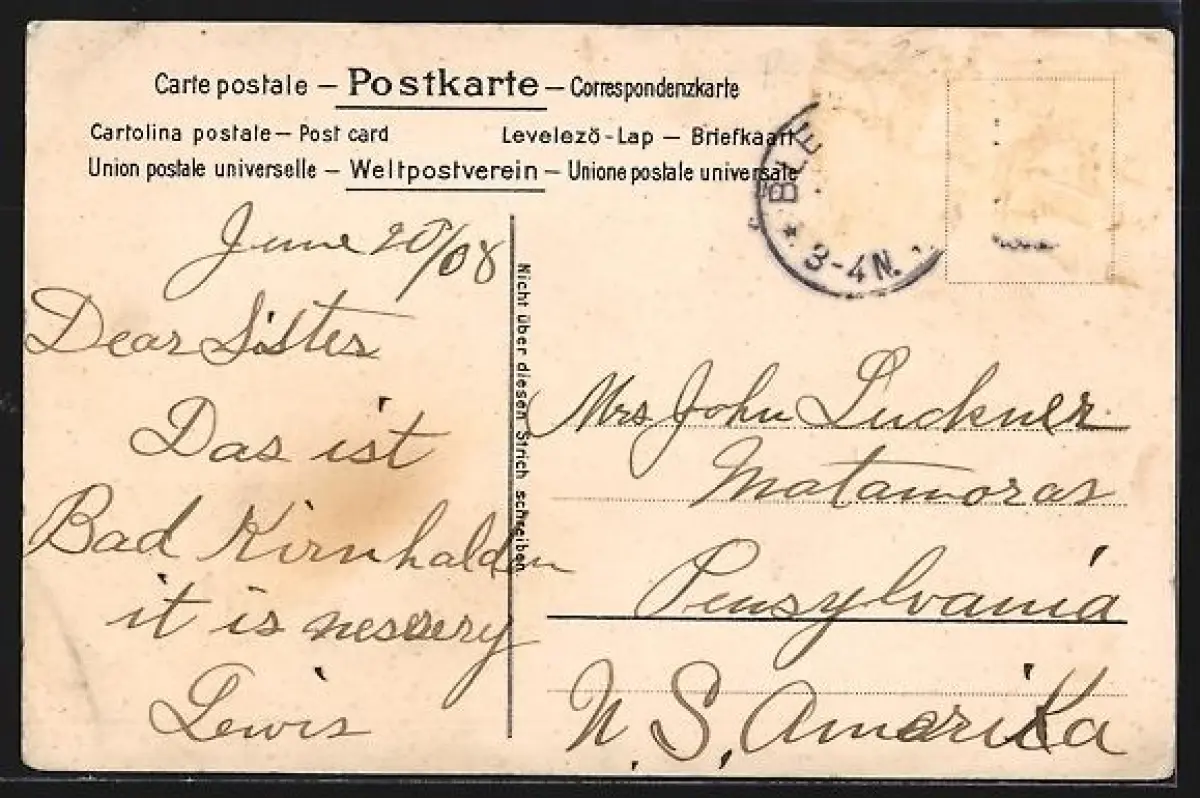 Carte postale – Postkarte – Correspondenzkarte
Cartolina postale – Post card Levelezö-Lap – Briefkaart
Union postale universelle – Weltpostverein – Unione postale universale
BLE
* 3-4 N.
June 20/08
Dear Sister
Das ist
Bad Kirnhalden
it is
Lewis
Nicht über diesen Strich schreiben.
Mrs John Luckner
Matamoras
Pensylvania
N. S. Amerika